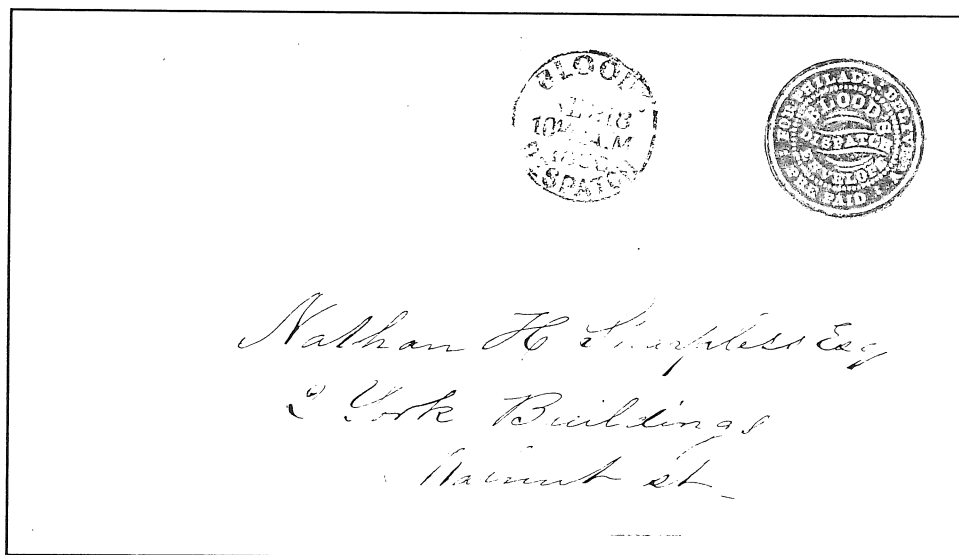 BLOOD'S
18
10½ A.M
DESPATCH
FOR PHILADA. DELIVERY
BLOOD'S
DISPATCH
ENVELOPE
PRE PAID
Nathan H Sharpless Esq
2 York Buildings
Walnut st